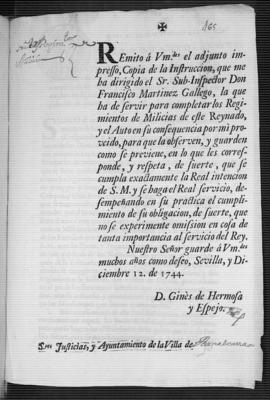 ✠
REmito á Vm.des el adjunto im-
presso, Copia de la Instruccion, que me
ha dirigido el Sr. Sub-Inspector Don
Francisco Martinez Gallego, la que
ha de servir para completar los Regi-
mientos de Milicias de este Reynado,
y el Auto en su consequencia por mi pro-
veido, para que la observen, y guarden
como se previene, en lo que les corres-
ponde, y respeta, de suerte, que se
cumpla exactamente la Real intencion
de S. M. y se haga el Real servicio, de-
sempeñando en su practica el cumpli-
miento de su obligacion, de suerte, que
no se experimente omission en cosa de
tanta importancia al servicio del Rey.
Nuestro Señor guarde á Vm.des
muchos años como deseo, Sevilla, y Di-
ciembre 12. de 1744.
D. Ginès de Hermosa
y Espejo.
S.res Justicias, y Ayuntamiento de la Villa de